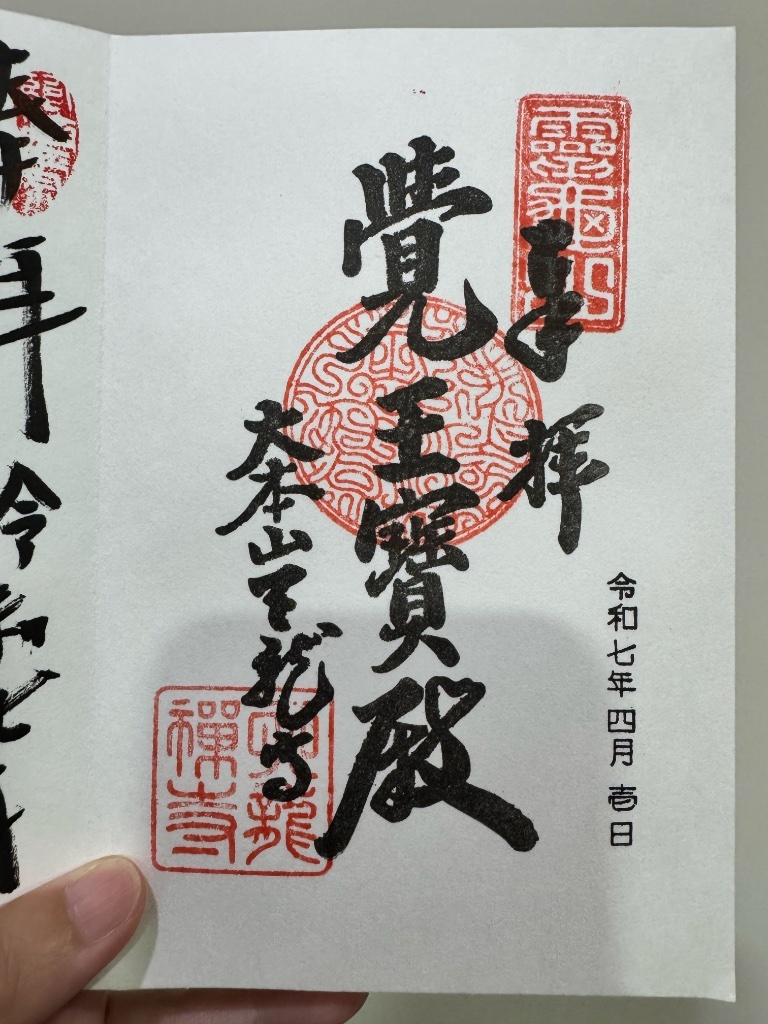 奉拝
覺王寶殿
大本山天龍寺
令和七年四月壱日
靈龜山
天龍
禪寺
拝
令和七年